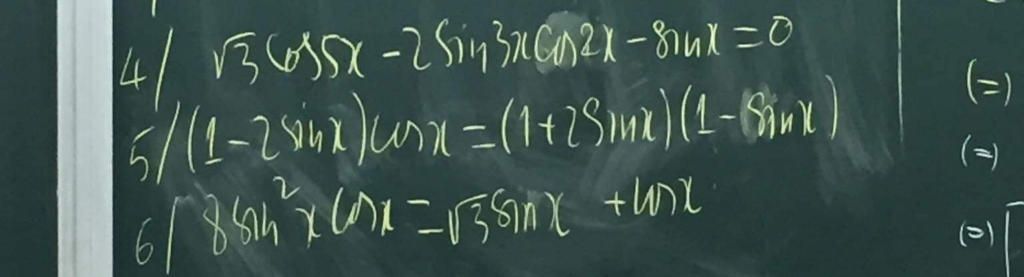 4/ √3 cos5x - 2 sin3x cos2x - sinx = 0
5/ (1 - 2 sinx) cosx = (1 + 2 sinx)(1 - sinx)
6/ 8 sin²x cosx = √3 sinx + cosx
(=)
(=)
(=)